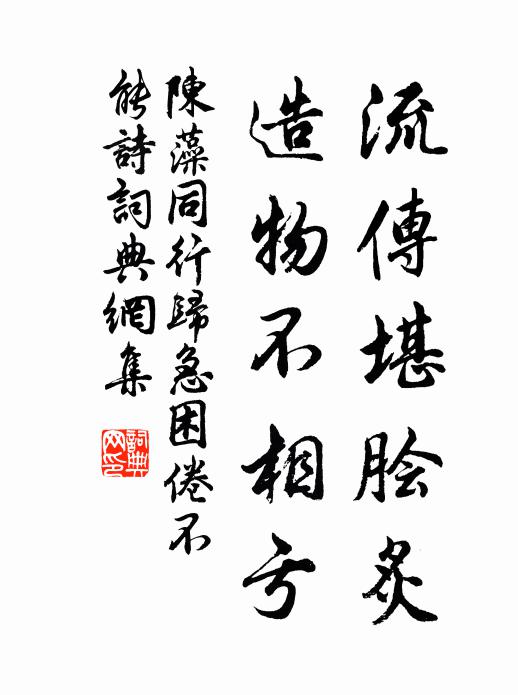 流傳堪膾炙
造物不相亏
陳藻同行歸急困倦不
能詩詞典網集
詞典
网印